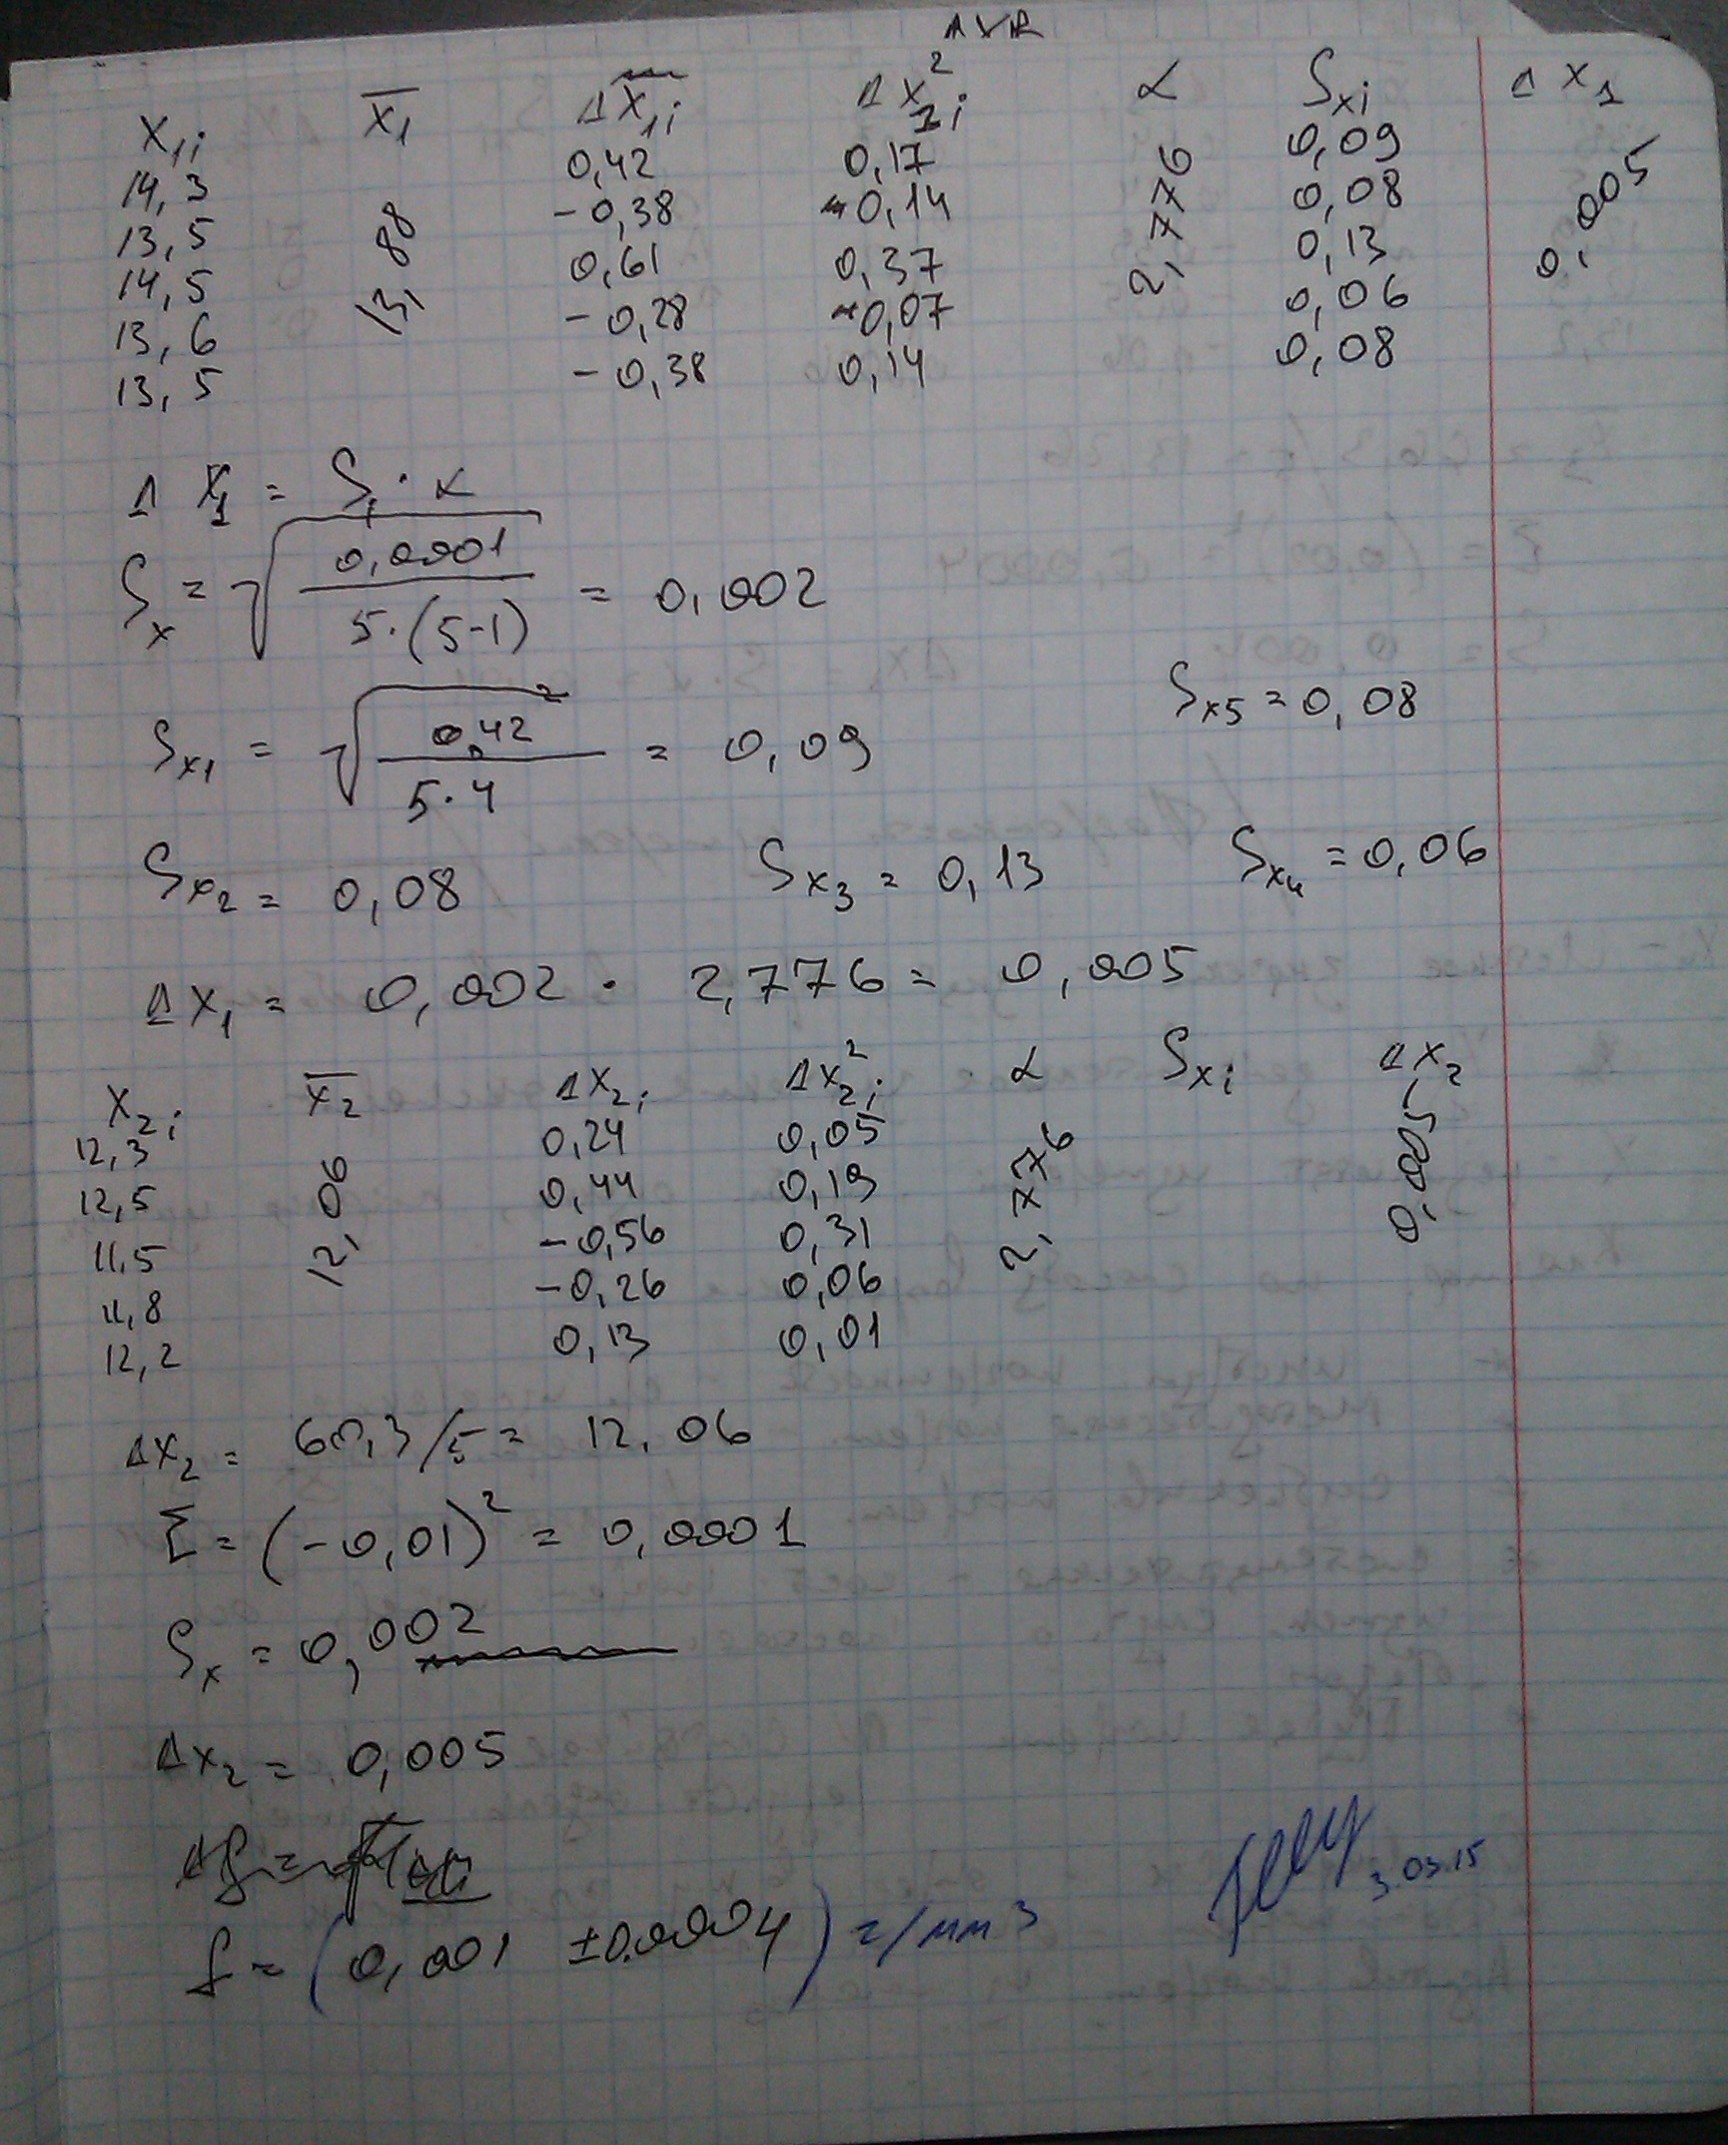 X₁ᵢ X̅₁ ΔX₁ᵢ ΔX²₁ᵢ α Sxi ΔX₁
14,3 13,88 0,42 0,17 2,776 0,09 0,005
13,5 -0,38 0,14 0,08
14,5 0,61 0,37 0,13
13,6 -0,28 0,07 0,06
13,5 -0,38 0,14 0,08
Δ X̅₁ = S₁ · α
Sx = √(0,0001 / 5·(5-1)) = 0,002
Sx1 = √(0,42² / 5·4) = 0,09
Sx5 = 0,08
Sx2 = 0,08 Sx3 = 0,13 Sx4 = 0,06
ΔX₁ = 0,002 · 2,776 = 0,005
X₂ᵢ X̅₂ ΔX₂ᵢ ΔX²₂ᵢ α Sxi ΔX₂
12,3 12,06 0,24 0,05 2,776 0,005
12,5 0,44 0,19
11,5 -0,56 0,31
11,8 -0,26 0,06
12,2 0,13 0,01
ΔX₂ = 60,3/5 = 12,06
Σ = (-0,01)² = 0,0001
Sx = 0,002
ΔX₂ = 0,005
ρ = (0,001 ±0.0004) г/мм³
3.03.15